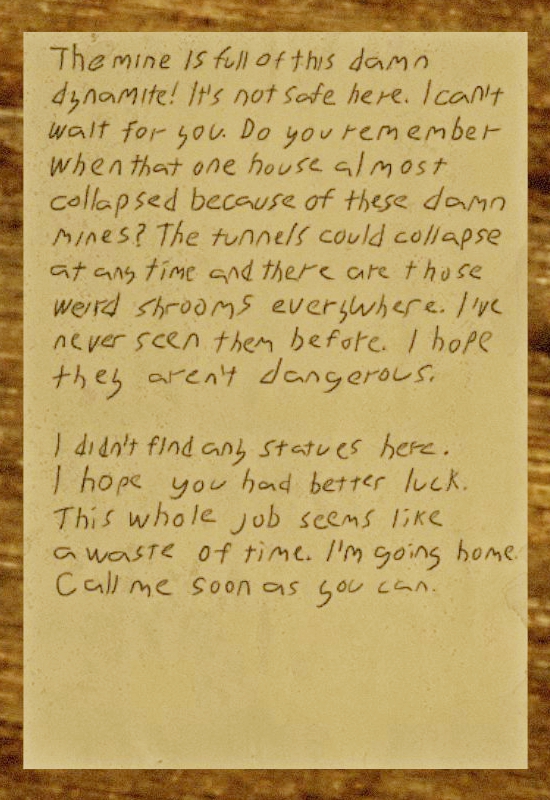 The mine is full of this damn
dynamite! It's not safe here. I can't
wait for you. Do you remember
when that one house almost
collapsed because of these damn
mines? The tunnels could collapse
at any time and there are those
weird shrooms everywhere. I've
never seen them before. I hope
they aren't dangerous.
I didn't find any statues here.
I hope you had better luck.
This whole job seems like
a waste of time. I'm going home.
Call me soon as you can.